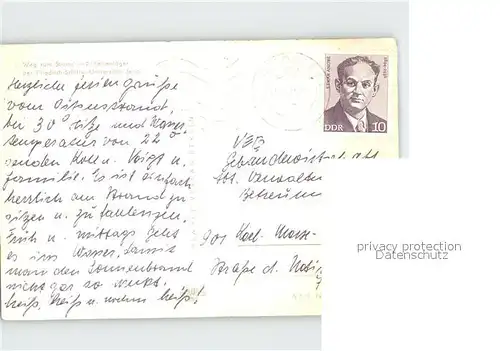 Weg zum Strand und Ferienlager
der Friedrich-Schiller-Universität Jena
Herzliche Feriengrüße
vom Ostseestrand,
bei 30° Hitze und Wasser-
temperatur von 22°
senden Koll. u. Voigt u.
Familie. Es ist einfach
herrlich am Strand zu
sitzen u. zu faulenzen.
Früh u. mittags geht
es ins Wasser, damit
man den Sonnenbrand
nicht gar so merkt,
heiß, heiß u. nochm. heiß!
DDR 10
VEB
Gebäudewirtschaft
Abt. Verwalter
Betreuun
901 Karl-Marx-
Straße d. Nati
privacy protection
Datenschutz